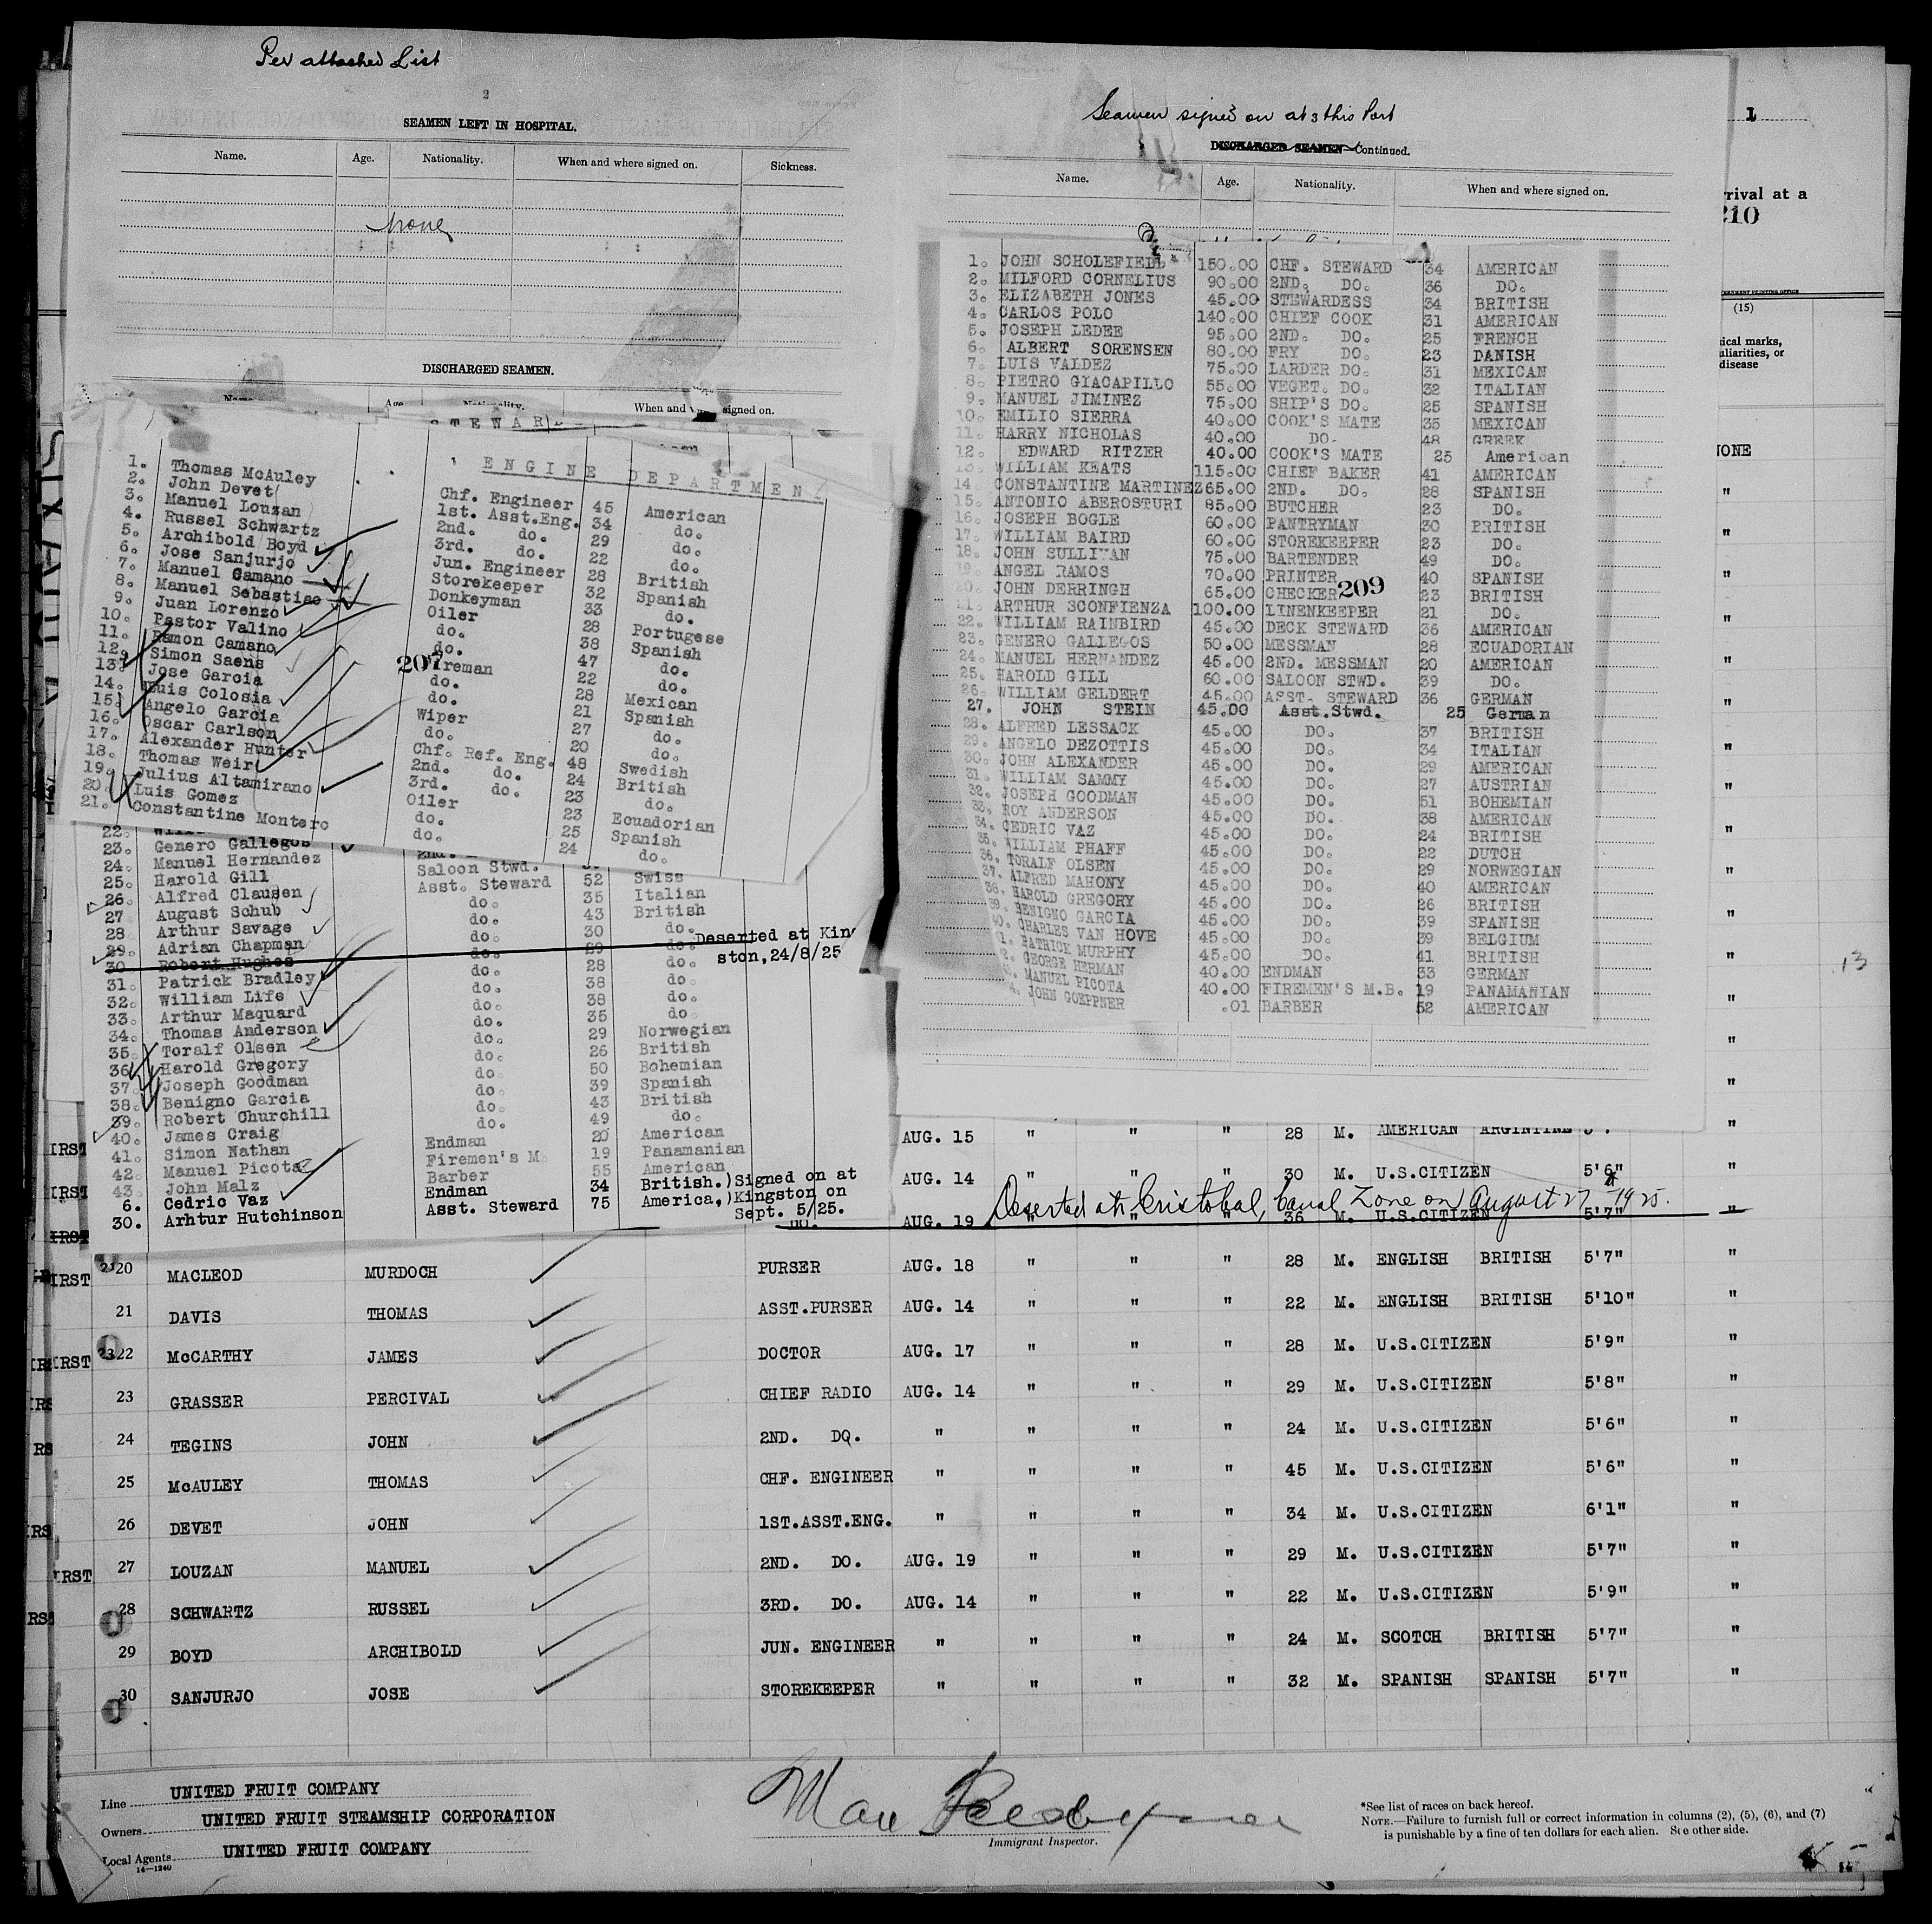 Per attached List
2
SEAMEN LEFT IN HOSPITAL.
Name. Age. Nationality. When and where signed on. Sickness.
None
DISCHARGED SEAMEN.
When and signed on.
ENGINE DEPARTMENT
1. Thomas McAuley Chf. Engineer 45 American
2. John Devet 1st. Asst.Eng. 34 do.
3. Manuel Louzan 2nd. do. 29 do.
4. Russel Schwartz 3rd. do. 22 do.
5. Archibold Boyd Jun. Engineer 28 British
6. Jose Sanjurjo Storekeeper 32 Spanish
7. Manuel Camano Donkeyman 33 do.
8. Manuel Sebastiao Oiler 28 Portugese
9. Juan Lorenzo do. 38 Spanish
10. Pastor Valino do. 47 do.
11. Ramon Camano Fireman 22 do.
12. Simon Saens do. 28 Mexican
13. Jose Garcia do. 21 Spanish
14. Luis Colosia Wiper 27 do.
15. Angelo Garcia do. 20 do.
16. Oscar Carlson Chf. Ref. Eng. 48 Swedish
17. Alexander Hunter 2nd. do. 24 British
18. Thomas Weir 3rd. do. 23 do.
19. Julius Altamirano Oiler 23 Ecuadorian
20. Luis Gomez do. 25 Spanish
21. Constantine Montero do. 24 do.
207
22.
23. Genero Gallegos
24. Manuel Hernandez
25. Harold Gill Saloon Stwd. 52 Swiss
26. Alfred Clausen Asst. Steward 35 Italian
27 August Schub do. 43 British
28 Arthur Savage do. 30 do.
29. Adrian Chapman do. 29 do. Deserted at King
30 Robert Hughes do. 28 do. ston,24/8/25
31. Patrick Bradley do. 38 do.
32. William Life do. 38 do.
33. Arthur Maquard do. 35 do.
34. Thomas Anderson do. 29 Norwegian
35. Toralf Olsen do. 26 British
36. Harold Gregory do. 50 Bohemian
37. Joseph Goodman do. 39 Spanish
38. Benigno Garcia do. 43 British
39. Robert Churchill do. 49 do.
40. James Craig Endman 20 American
41. Simon Nathan Firemen's M. 19 Panamanian
42. Manuel Picota Barber 55 American
43. John Malz
6. Cedric Vaz Endman 34 British.)Signed on at
30. Arhtur Hutchinson Asst. Steward 75 America,)Kingston on
Sept. 5/25.
Seamen signed on at this Port
3
DISCHARGED SEAMEN—Continued.
Name. Age. Nationality. When and where signed on.
1. JOHN SCHOLEFIELD 150.00 CHF. STEWARD 34 AMERICAN
2. MILFORD CORNELIUS 90.00 2ND. DO. 36 DO.
3. ELIZABETH JONES 45.00 STEWARDESS 34 BRITISH
4. CARLOS POLO 140.00 CHIEF COOK 31 AMERICAN
5. JOSEPH LEDEE 95.00 2ND. DO. 25 FRENCH
6. ALBERT SORENSEN 80.00 FRY DO. 23 DANISH
7. LUIS VALDEZ 75.00 LARDER DO. 31 MEXICAN
8. PIETRO GIACAPILLO 55.00 VEGET. DO. 32 ITALIAN
9. MANUEL JIMINEZ 75.00 SHIP'S DO. 25 SPANISH
10. EMILIO SIERRA 40.00 COOK'S MATE 35 MEXICAN
11. HARRY NICHOLAS 40.00 DO. 48 GREEK
12. EDWARD RITZER 40.00 COOK'S MATE 25 American
13. WILLIAM KEATS 115.00 CHIEF BAKER 41 AMERICAN
14. CONSTANTINE MARTINEZ 65.00 2ND. DO. 28 SPANISH
15. ANTONIO ABEROSTURI 85.00 BUTCHER 23 DO.
16. JOSEPH BOGLE 60.00 PANTRYMAN 30 PRITISH
17. WILLIAM BAIRD 60.00 STOREKEEPER 23 DO.
18. JOHN SULLIVAN 75.00 BARTENDER 49 DO.
19. ANGEL RAMOS 70.00 PRINTER 40 SPANISH
20. JOHN DERRINGH 65.00 CHECKER 23 BRITISH
209
21. ARTHUR SCONFIENZA 100.00 LINENKEEPER 21 DO.
22. WILLIAM RAINBIRD 45.00 DECK STEWARD 36 AMERICAN
23. GENERO GALLEGOS 50.00 MESSMAN 28 ECUADORIAN
24. MANUEL HERNANDEZ 45.00 2ND. MESSMAN 20 AMERICAN
25. HAROLD GILL 60.00 SALOON STWD. 39 DO.
26. WILLIAM GELDERT 45.00 ASST. STEWARD 36 GERMAN
27. JOHN STEIN 45.00 Asst.Stwd. 25 German
28. ALFRED LESSACK 45.00 DO. 37 BRITISH
29. ANGELO DEZOTTIS 45.00 DO. 34 ITALIAN
30. JOHN ALEXANDER 45.00 DO. 29 AMERICAN
31. WILLIAM SAMMY 45.00 DO. 27 AUSTRIAN
32. JOSEPH GOODMAN 45.00 DO. 51 BOHEMIAN
33. ROY ANDERSON 45.00 DO. 38 AMERICAN
34. CEDRIC VAZ 45.00 DO. 24 BRITISH
35. WILLIAM PHAFF 45.00 DO. 22 DUTCH
36. TORALF OLSEN 45.00 DO. 29 NORWEGIAN
37. ALFRED MAHONY 45.00 DO. 40 AMERICAN
38. HAROLD GREGORY 45.00 DO. 26 BRITISH
39. BENIGNO GARCIA 45.00 DO. 39 SPANISH
40. CHARLES VAN HOVE 45.00 DO. 39 BELGIUM
41. PATRICK MURPHY 45.00 DO. 41 BRITISH
42. GEORGE HERMAN 40.00 ENDMAN 33 GERMAN
43. MANUEL PICOTA 40.00 FIREMEN'S M.B. 19 PANAMANIAN
44. JOHN GOEPPNER .01 BARBER 52 AMERICAN
1
rrival at a
210
(15)
sical marks,
uliarities, or
disease
NONE
13
AUG. 15 " " " 28 M. AMERICAN ARGINTINE
AUG. 14 " " " 30 M. U.S.CITIZEN 5'6" "
Deserted at Cristobal, Canal Zone on August 27th 1925.
AUG. 19 " " " 36 M. U.S.CITIZEN 5'7" "
20 MACLEOD MURDOCH PURSER AUG. 18 " " " 28 M. ENGLISH BRITISH 5'7" "
21 DAVIS THOMAS ASST.PURSER AUG. 14 " " " 22 M. ENGLISH BRITISH 5'10" "
22 McCARTHY JAMES DOCTOR AUG. 17 " " " 28 M. U.S.CITIZEN 5'9" "
23 GRASSER PERCIVAL CHIEF RADIO AUG. 14 " " " 29 M. U.S.CITIZEN 5'8" "
24 TEGINS JOHN 2ND. DO. " " " " 24 M. U.S.CITIZEN 5'6" "
25 McAULEY THOMAS CHF. ENGINEER " " " " 45 M. U.S.CITIZEN 5'6" "
26 DEVET JOHN 1ST.ASST.ENG. " " " " 34 M. U.S.CITIZEN 6'1" "
27 LOUZAN MANUEL 2ND. DO. AUG. 19 " " " 29 M. U.S.CITIZEN 5'7" "
28 SCHWARTZ RUSSEL 3RD. DO. AUG. 14 " " " 22 M. U.S.CITIZEN 5'9" "
29 BOYD ARCHIBOLD JUN. ENGINEER " " " " 24 M. SCOTCH BRITISH 5'7" "
30 SANJURJO JOSE STOREKEEPER " " " " 32 M. SPANISH SPANISH 5'7" "
Line UNITED FRUIT COMPANY
Owners UNITED FRUIT STEAMSHIP CORPORATION
Local Agents UNITED FRUIT COMPANY
14—1240
Immigrant Inspector.
*See list of races on back hereof.
NOTE.—Failure to furnish full or correct information in columns (2), (5), (6), and (7)
is punishable by a fine of ten dollars for each alien. See other side.